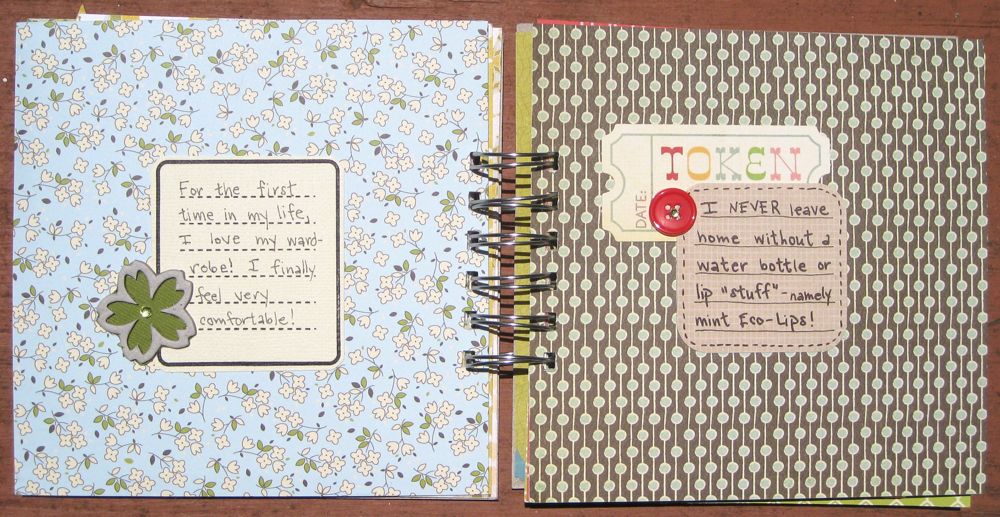 For the first
time in my life,
I love my ward-
robe! I finally
feel very
comfortable!
TOKEN
DATE:
I NEVER leave
home without a
water bottle or
lip "stuff"-namely
mint Eco-Lips!